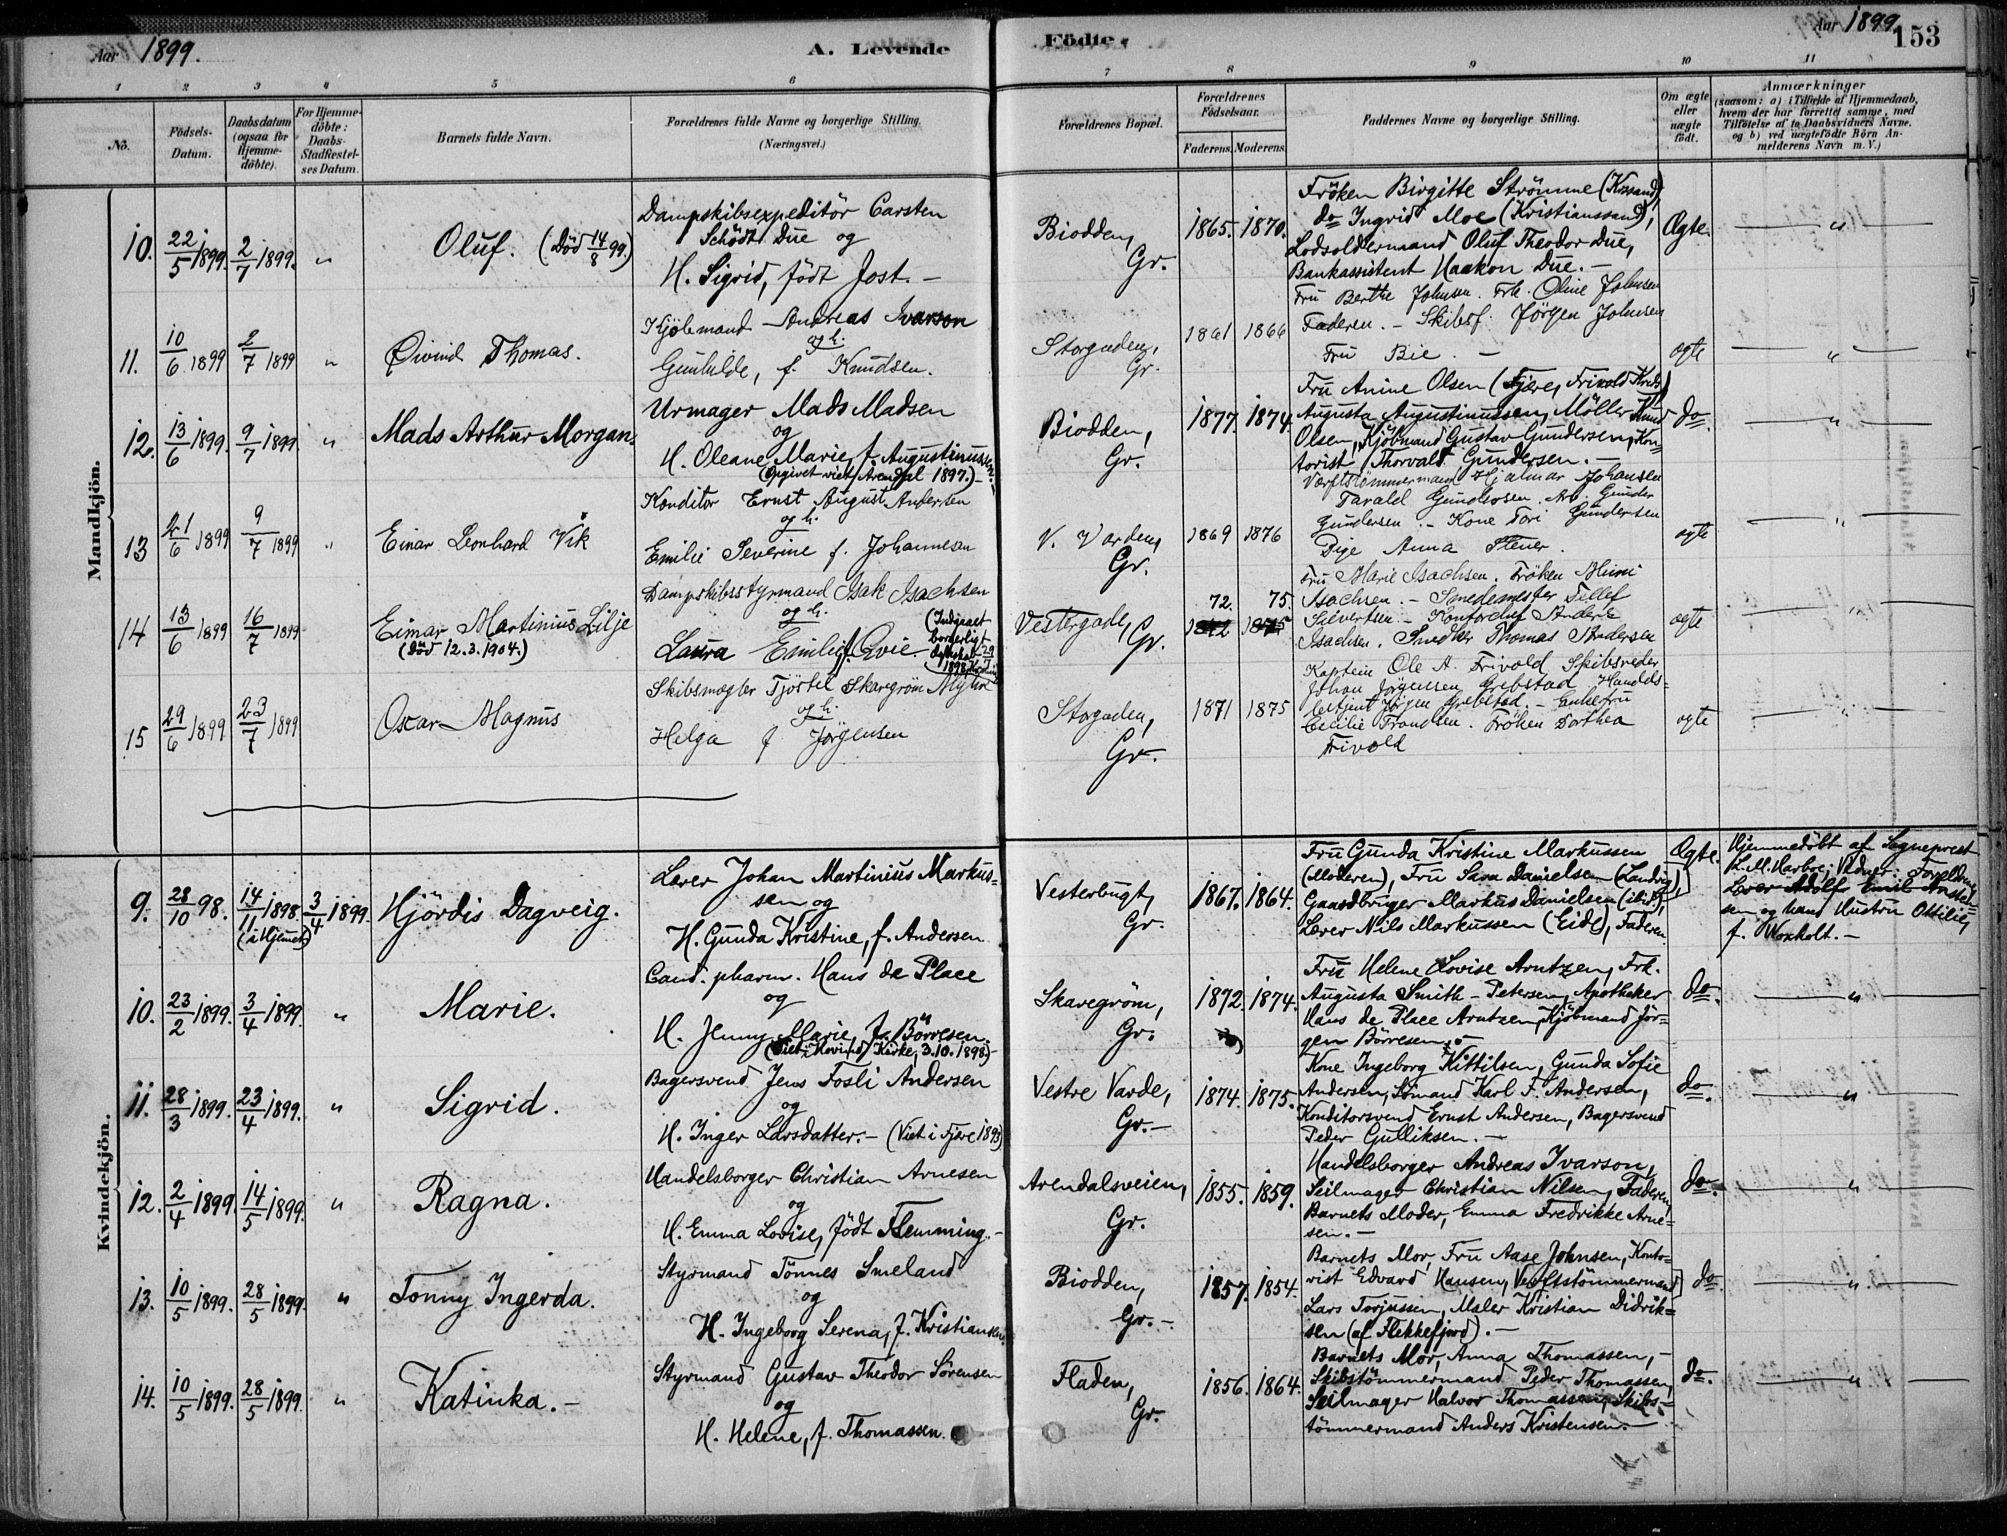 Aar 1899.
A. Levende
Födte.
Aar 1899.
153
1 2 3 4 5 6 7 8 9 10 11
No.
Födsels-
Datum.
Daabsdatum
(ogsaa for
Hjemme-
döbte).
For Hjemme-
döbte:
Daabs-
Stadfæstel-
ses Datum.
Barnets fulde Navn.
Forældrenes fulde Navne og borgerlige Stilling.
(Næringsvei.)
Forældrenes Bopæl.
Forældrenes
Födselsaar.
Faderens. Moderens.
Faddernes Navne og borgerlige Stilling.
Om ægte
eller
uægte
födt.
Anmærkninger
(saasom: a) i Tilfælde af Hjemmedaab,
hvem der har forrettet samme, med
Tilföielse af to Daabsvidners Navne,
og b) ved uægtefödte Börn An-
melderens Navn m. V.)
Mandkjön.
10. 22/5 1899. 2/7 1899. "
Oluf. (Död 14/8 99.)
Dampskibsexpeditör Carsten
Schödt Due og
H. Sigrid, födt Jost. -
Biodden,
Gr.
1865. 1870.
Fröken Birgitte Strömme (Krssand),
do Ingrid Moe (Kristianssand),
Lodsoldermand Oluf Theodor Due,
Bankassistent Haakon Due. -
Ægte.
"
11. 10/6 1899 2/7 1899 "
Øivind Thomas.
Kjöbmand Andreas Ivarson
og h.
Gunhilde, f. Knudsen.
Storgaden,
Gr.
1861 1866
Fru Berthe Johnsen. Frk. Oline Johnsen
Faderen. - Skibsf. Jörgen Johnsen
Fru Bie. -
ægte
"
12. 13/6 1899. 9/7 1899. "
Mads Arthur Morgan.
Urmager Mads Madsen
og
H. Oleane Marie, f. Augustinussen.
(Opgivet viet i Arendal 1897.) -
Biodden,
Gr.
1877. 1874.
Fru Anine Olsen (Fjære, Frivold Kreds)
Augusta Augustinussen, Möller Knud
Olsen, Kjöbmand Gustav Gundersen, Kon-
torist Thorvald Gundersen. -
do.
"
13 21/6 1899 9/7 1899 "
Einar Leonhard Vik
Konditor Ernst August Andersen
og h.
Emilie Severine f. Johannesen
V. Varden,
Gr.
1869 1876
Værftstömmermand Hjalmar Johansen
Tarald Gundersen. Arb. Gunder
Gundersen. - Kone Tori Gundersen
Pige Anna Stener.
ægte
"
14 13/6 1899 16/7 1899
Einar Martinius Lilje
(död 12.3.1904.)
Dampskibsstyrmand Isak Isachsen
og h.
Laura Emilie f. Evie
(Indgaaet
borgerligt
Ægteskab
1898
Vestergade,
Gr.
72. 75.
1872 1875
Fru Marie Isachsen. Fröken Mimi
Isachsen. - Smedemester Tellef
Sivertsen. - Kontorchef Anders
Isachsen. Snedker Thomas Andersen
ægte
"
15 29/6 1899 23/7 1899
Oscar Magnus
Skibsmægler Tjöstel Skaregröm Myhre
og h.
Helga f Jörgensen
Storgaden,
Gr.
1871 1875
Kaptein Ole A. Frivold, Skibsreder
Johan Jörgensen Grebstad. Handels-
betjent Jörgen Grebstad. - Enkefru
Cecilie Frandsen. Fröken Dorthea
Frivold
ægte
"
Kvindekjön.
9. 28/10 98. 14/11 1898. (i Hjemmet) 3/4 1899.
Hjördis Dagveig.
Lærer Johan Martinius Markus-
sen og
H. Gunda Kristine, f. Andersen
Vesterbugt,
Gr.
1867. 1864.
Fru Gunda Kristine Markussen
(Moderen), Fru Sara Danielsen (Landvig),
Gaardbruger Markus Danielsen (ibid.),
Lærer Nils Markussen (Eide), Faderen.
Ægte.
Hjemmedöbt af Sogneprest
L. M. Harboe; Vidner: Forældrene
Lærer Adolf Emil
sen og hans Hustru Ottilie,
f. Woxholt. -
10. 23/2 1899. 3/4 1899. "
Marie.
Cand. pharm. Hans de Place
og
H. Jenny Marie, f. Börresen.
(Viet i Hovind Kirke, 3.10.1898) -
Skaregröm,
Gr.
1872. 1874.
Fru Helene Lovise Arntzen, Frk.
Augusta Smith-Petersen, Apotheker
Hans de Place Arntzen, Kjöbmand Jör-
gen Börresen. -
do.
"
11. 28/3 1899. 23/4 1899. "
Sigrid.
Bagersvend Jens Fosli Andersen
og
H. Inger Larsdatter. - (Viet i Fjære 1893)
Vestre Varde,
Gr. -
1874. 1875.
Kone Ingeborg Kittilsen, Gunda Sofie
Andersen, Sömand Karl F. Andersen,
Konditorsvend Ernst Andersen, Bagersvend
Peder Gulliksen. -
do.
"
12. 2/4 1899. 14/5 1899. "
Ragna.
Handelsborger Christian Arnesen
og
H. Emma Lovise, födt Flemming. -
Arendalsveien,
Gr.
1855. 1859.
Handelsborger Andreas Ivarson,
Seilmager Christian Nilsen, Faderen,
Barnets Moder, Emma Fredrikke Arne-
sen. -
do.
"
13. 10/5 1899. 28/5 1899. "
Tonny Ingerda.
Styrmand Tönnes Smeland
og
H. Ingeborg Serena, f. Kristiansen.
Biodden,
Gr. -
1857. 1854.
Barnets Mor, Fru Aase Johnsen, Konto-
rist Edvard Hansen, Værftstömmermand
Lars Torjussen, Maler Kristian Didrik-
sen (af Flekkefjord). -
do.
"
14. 10/5 1899. 28/5 1899. "
Katinka. -
Styrmand Gustav Theodor Sörensen
og
H. Helene, f. Thomassen.
Fladen,
Gr.
1856. 1864.
Barnets Mor, Anna Thomassen, -
Skibstömmermand Peder Thomassen,
Seilmager Halvor Thomassen, Skibs-
tömmermand Anders Kristensen. -
do.
"